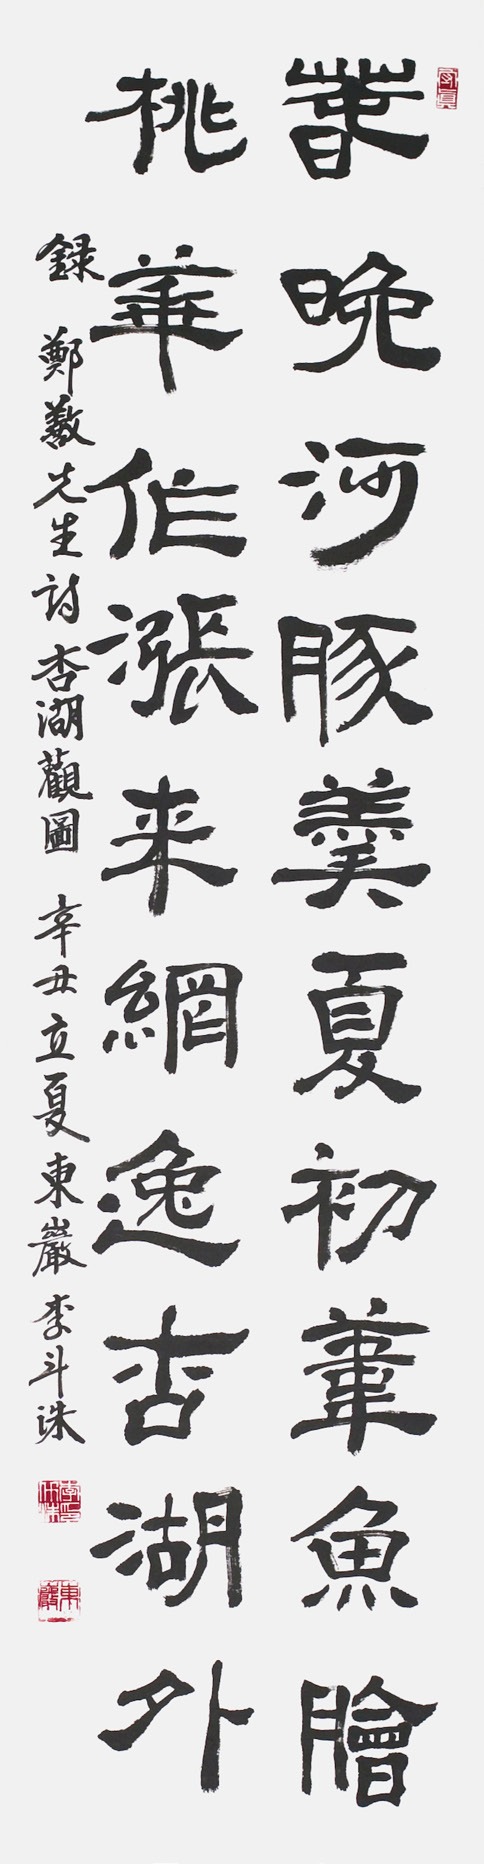 春晚河豚羹夏初葦魚膾
桃華作漲来網逸杏湖外
録 鄭敾先生詩杏湖觀圖 辛丑立夏東巖李斗洙